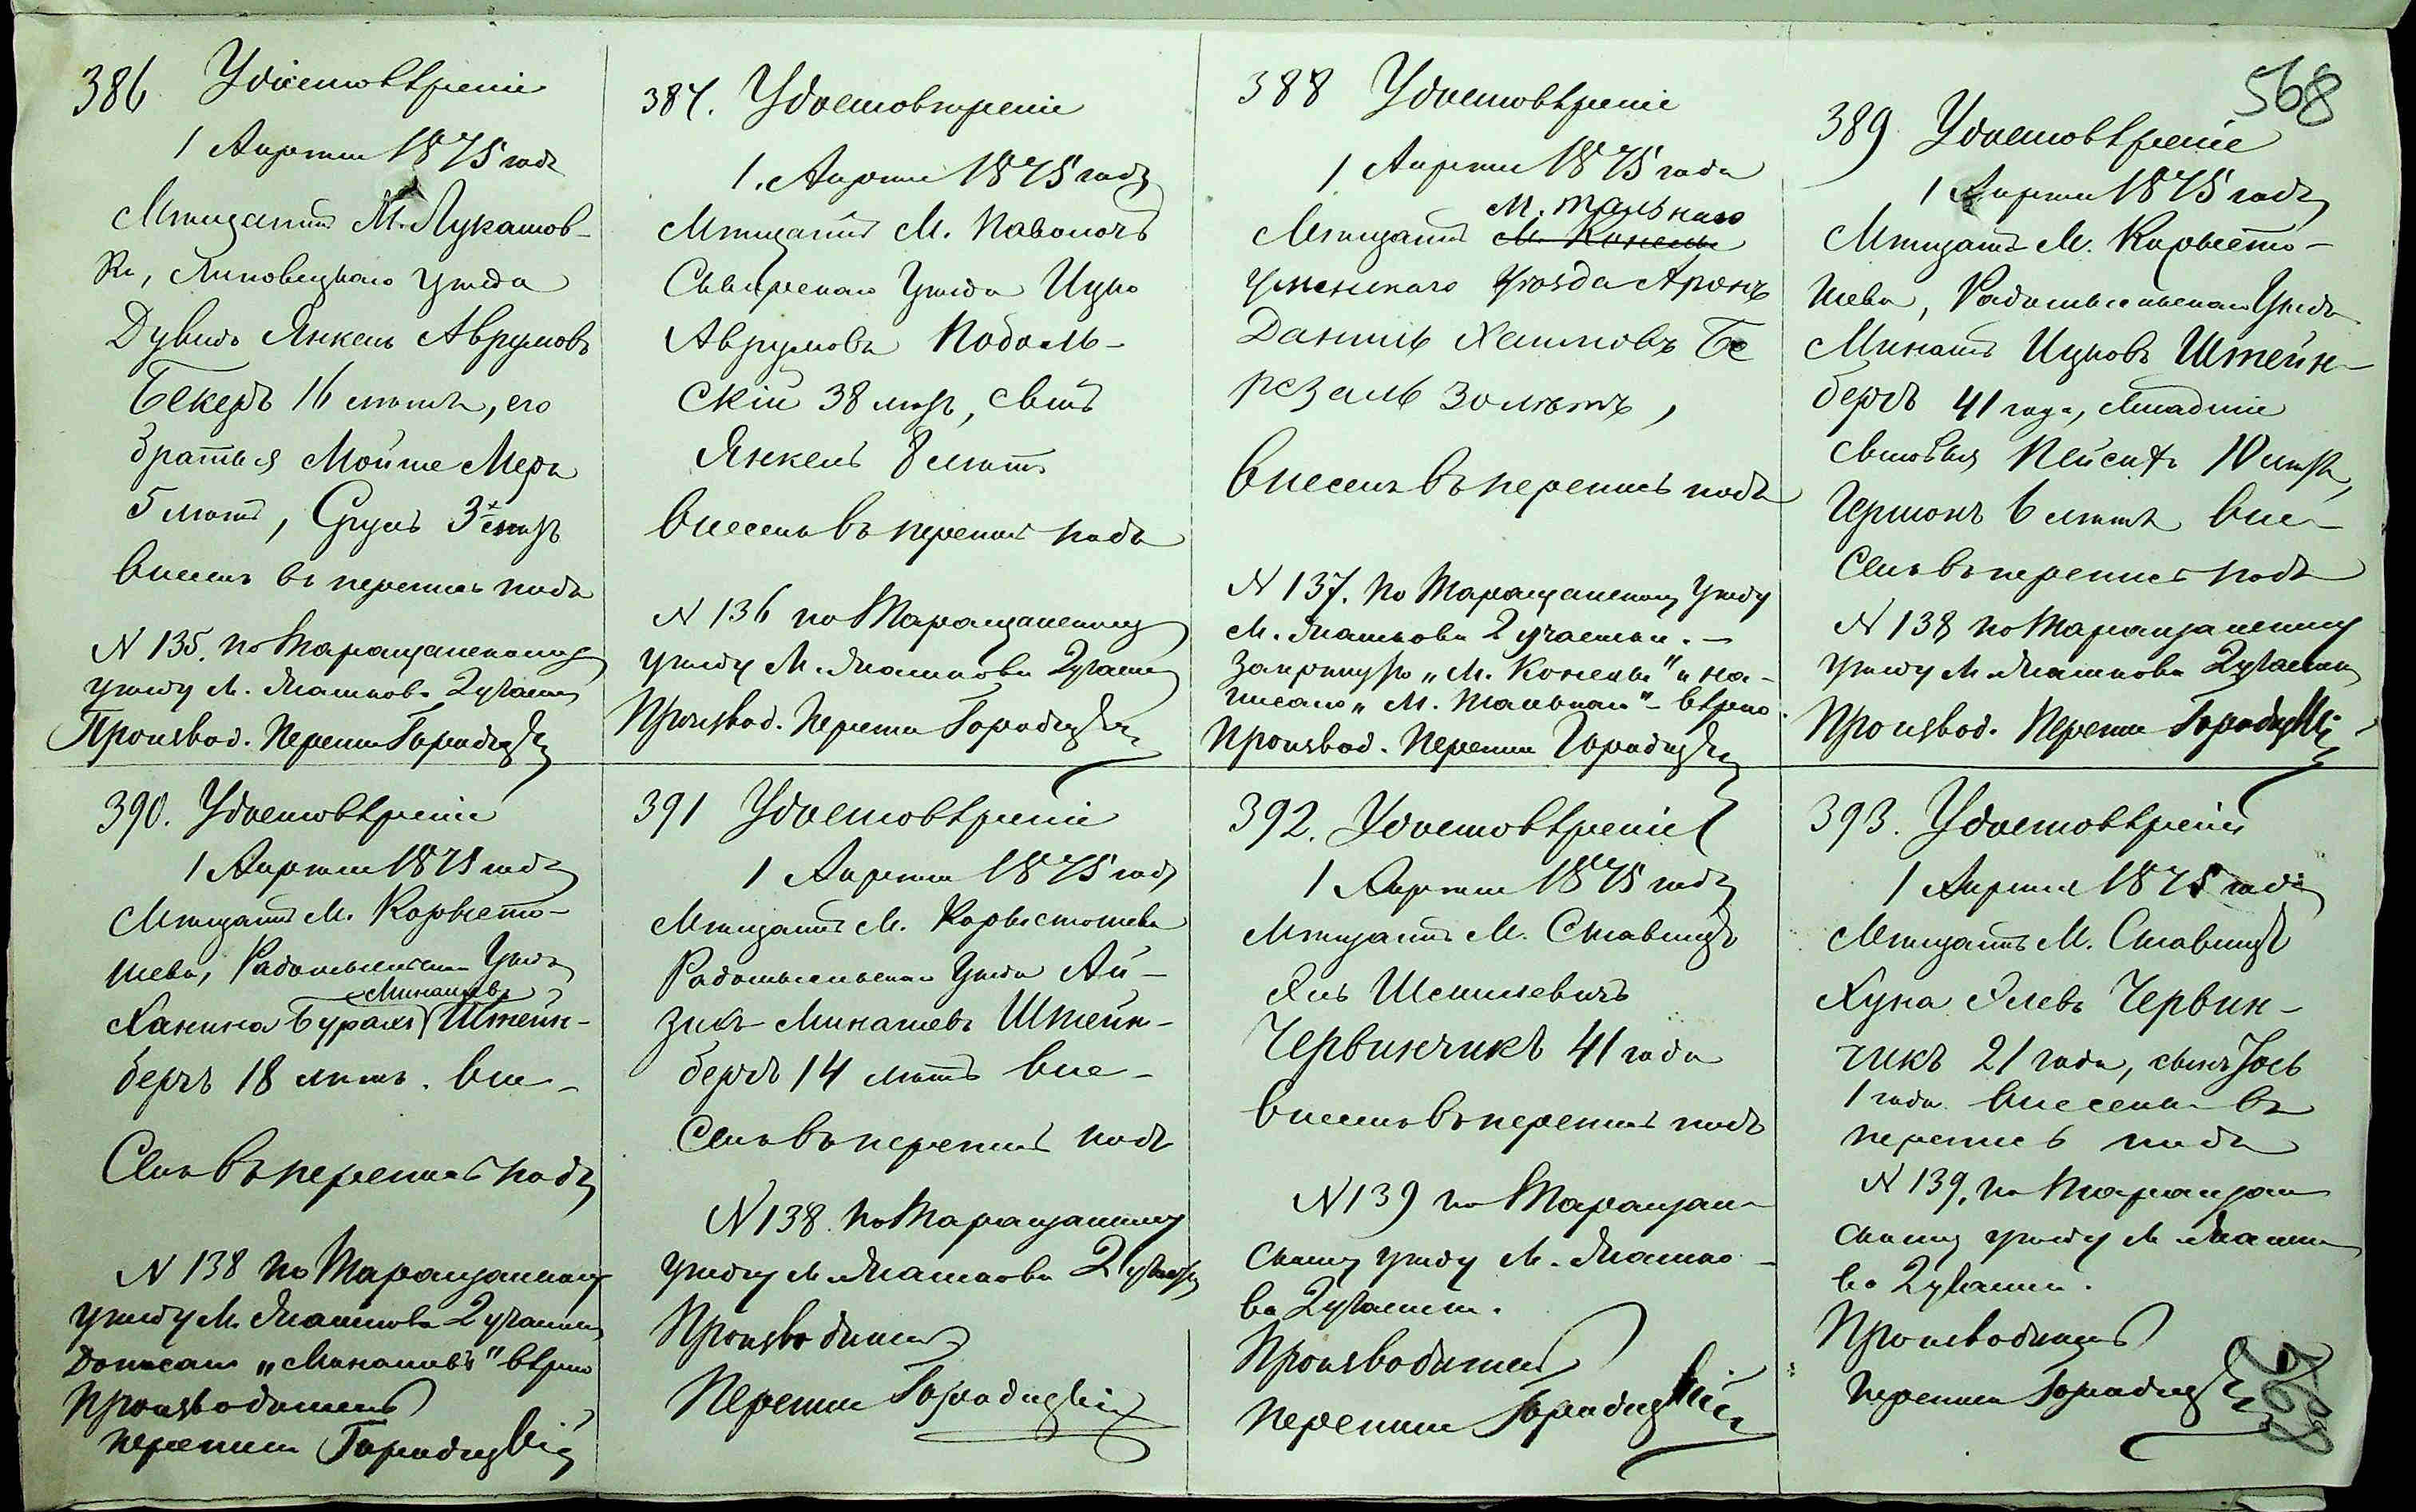 568
386 Удостовѣреніе
1 Апрѣля 1875 года
Мѣщанинъ М. Лукашов-
ки, Липовецкаго уѣзда
Дувидъ Янкель Аврумовъ
Бекеръ 16 лѣтъ, его
братья Мойше Меръ
5 лѣтъ, Сруль 3х лѣтъ
внесенъ въ перепись подъ
N 135. по Таращанскому
уѣзду м. Пятигоры 2 участка
Производ. Переписи Городецкій
387. Удостовѣреніе
1. Апрѣля 1875 года
Мѣщанинъ М. Паволочь
Сквирскаго Уѣзда Ицко
Аврумовъ Подоль-
скій 38 лѣтъ, сынъ
Янкель 8 лѣтъ
внесенъ въ перепись подъ
N 136 по Таращанскому
уѣзду м. 2 участка
Производ. Переписи Городецкій
388 Удостовѣреніе
1 Апрѣля 1875 года
М. Тальнаго
Мѣщанинъ М. Конелы
Уманскаго Уѣзда Аронъ
Даниль Хаимовъ Бе
резаль 30 лѣтъ,
внесенъ въ перепись подъ
N 137. по Таращанскому уѣзду
м. 2 участка. –
Зачеркнуто „М. Конелы" и на-
писано „М. Тальнаго" – вѣрно.
Производ. Переписи Городецкій
389 Удостовѣреніе
1 Апрѣля 1875 года
Мѣщанинъ М. Коросты-
шева, Радомысльскаго Уѣзда
Минашъ Ицковъ Штейн-
бергъ 41 года, младшіе
сыновья Пейсахъ 10 лѣтъ,
Гершонъ 6 лѣтъ вне-
сенъ въ перепись подъ
N 138 по Таращанскому
уѣзду м. 2 участка
Производ. Переписи Городецкій
390. Удостовѣреніе
1 Апрѣля 1875 года
Мѣщанинъ М. Коросты-
шева, Радомысльскаго Уѣзда
Минашевъ
Ханина Бурахъ Штейн-
бергъ 18 лѣтъ. вне-
сенъ въ перепись подъ
N 138 по Таращанскому
уѣзду м. 2 участка
Дописано „Минашевъ" вѣрно
Производитель
переписи Городецкій
391 Удостовѣреніе
1 Апрѣля 1875 года
Мѣщанинъ М. Коростышева
Радомысльскаго Уѣзда Ай-
зикъ Минашевъ Штейн-
бергъ 14 лѣтъ вне-
сенъ въ перепись подъ
N 138. по Таращанскому
уѣзду м. 2 участка
Производитель
Переписи Городецкій
392. Удостовѣреніе
1 Апрѣля 1875 года
Мѣщанинъ М. Ставищъ
Эль Шмилевичъ
Червинчикъ 41 года
внесенъ въ перепись подъ
N 139 по Таращан-
скому уѣзду м.
2 участка.
Производитель
переписи Городецкій
393. Удостовѣреніе
1 Апрѣля 1875 года
Мѣщанинъ М. Ставищъ
Хуна Элевъ Червин-
чикъ 21 года, сынъ Іось
1 года внесены въ
перепись подъ
N 139, по Таращан
скому уѣзду м.
2 участка.
Производитель
переписи Городецкій
568